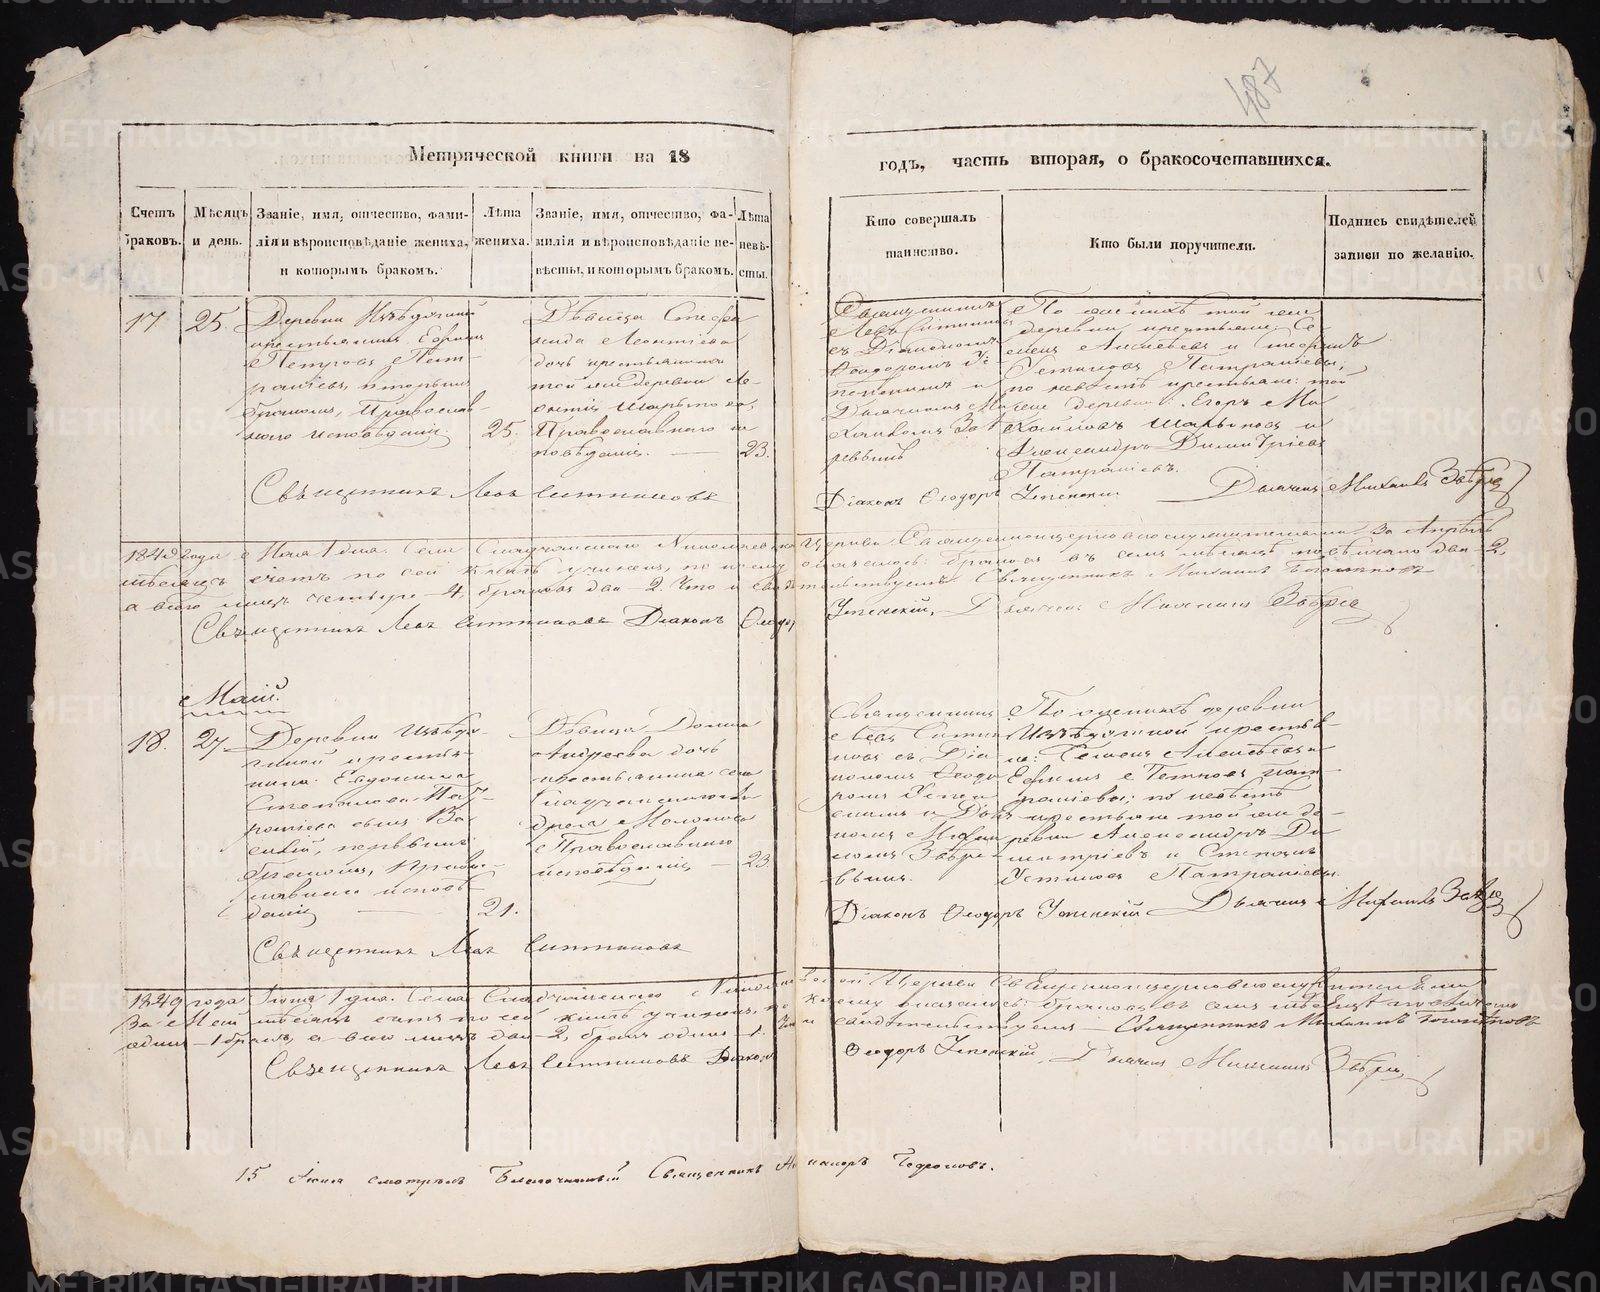 487
Метрической книги на 18
годъ, часть вторая, о бракосочетавшихся.
Счетъ браковъ.
Мѣсяцъ и день.
Званіе, имя, отчество, фами-
лія и вѣроисповѣданіе жениха,
и которымъ бракомъ.
Лѣта
жениха.
Званіе, имя, отчество, фа-
милія и вѣроисповѣданіе не-
вѣсты, и которымъ бракомъ.
Лѣта
невѣ-
сты.
Кто совершалъ
таинство.
Кто были поручители.
Подпись свидѣтелей
записи по желанію.
17
25.
Деревни
крестьянинъ Ефимъ
Петровъ Пат-
рашіевъ, вторымъ
бракомъ, Православ-
наго исповѣданія.
25.
Дѣвица Стефа
нида Леонтіева
дочь крестьянина
той же деревни Ле-
онтія
Православнаго ис
повѣданія.
23.
Священникъ
Левъ Ситниковъ
съ Діакономъ
Ѳеодоромъ Ус
пенскимъ и
Дьячкомъ Ми
хаиломъ Звѣ
ревымъ
По женихѣ той же
деревни крестьяне Се
менъ Алексѣевъ и
Устиновъ Патрашіевы,
по невѣстѣ крестьяне: той
же деревни: Егоръ Ми
хайловъ и
Александръ Димитріевъ
Патрашіевъ.
Священникъ Левъ Ситниковъ
Діаконъ Ѳеодоръ Успенскій
Дьячекъ Михаилъ Звѣрев
1849 года Мая 1 дня. Села Николаевской Церкви Священноцерковнослужителями за Апрѣль
мѣсяцъ счетъ по сей книгѣ учиненъ, по коему оказалось: браковъ въ семъ мѣсяцѣ повѣнчано два 2,
а всего лицъ четыре 4, браковъ два 2. Что и свидѣтельствуемъ Священникъ Михаилъ
Священникъ Левъ Ситниковъ Діаконъ Ѳеодоръ Успенскій, Дьячекъ Михаилъ Звѣрев
Маій.
18.
27
Деревни Изъѣду
гиной крестья
нина Евдокима
Степанова Пат-
рашіева сынъ Ва
силій, первымъ
бракомъ, Право-
славнаго исповѣ
данія
21.
Дѣвица Домна
Андреева дочь
крестьянина села
Ан
дрея
Православнаго
исповѣданія,
23
Священникъ
Левъ Ситни
ковъ съ Діа
кономъ Ѳеодо
ромъ Успен
скимъ и Дья
чкомъ Михаи
ломъ Звѣре-
вымъ.
По женихѣ деревни
крестья
не: Семенъ Алексѣевъ и
Ефимъ Петровъ Пат-
рашіевы; по невѣстѣ
крестьяне той же де-
ревни Александръ Ди
митріевъ и Степанъ
Устиновъ Патрашіевы.
Священникъ Левъ Ситниковъ
Діаконъ Ѳеодоръ Успенскій Дьячекъ Михаилъ Звѣрев
1849 года Іюня 1 дня. Села Николаевской Церкви Священноцерковнослужителями
за Май мѣсяцъ счетъ по сей книгѣ учиненъ, по коему оказалось: браковъ въ семъ мѣсяцѣ повѣнчано
одинъ 1 бракъ, а всего лицъ два 2, бракъ одинъ 1. Что и свидѣтельствуемъ Священникъ Михаилъ
Священникъ Левъ Ситниковъ Діаконъ Ѳеодоръ Успенскій. Дьячекъ Михаилъ Звѣрев
15 Іюня смотрѣлъ Благочинный Священникъ Никаноръ
METRIKI.GASO-URAL.RU